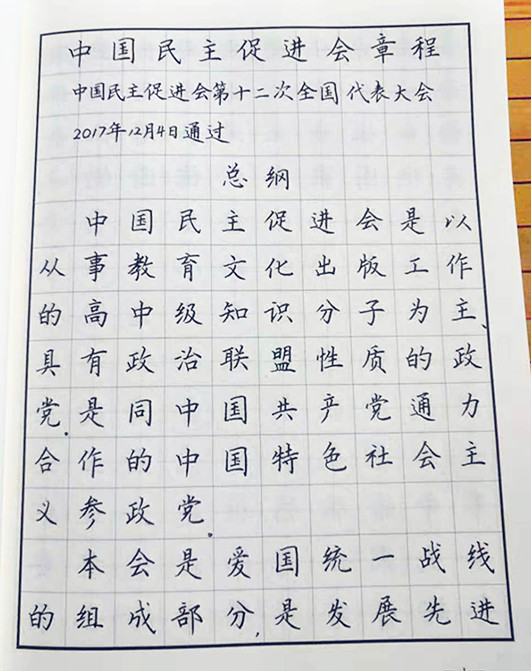 中国民主促进会章程
中国民主促进会第十二次全国代表大会
2017年12月4日通过
总纲
中国民主促进会是以
从事教育文化出版工作
的高中级知识分子为主、
具有政治联盟性质的政
党,是同中国共产党通力
合作的中国特色社会主
义参政党。
本会是爱国统一战线
的组成部分,是发展先进